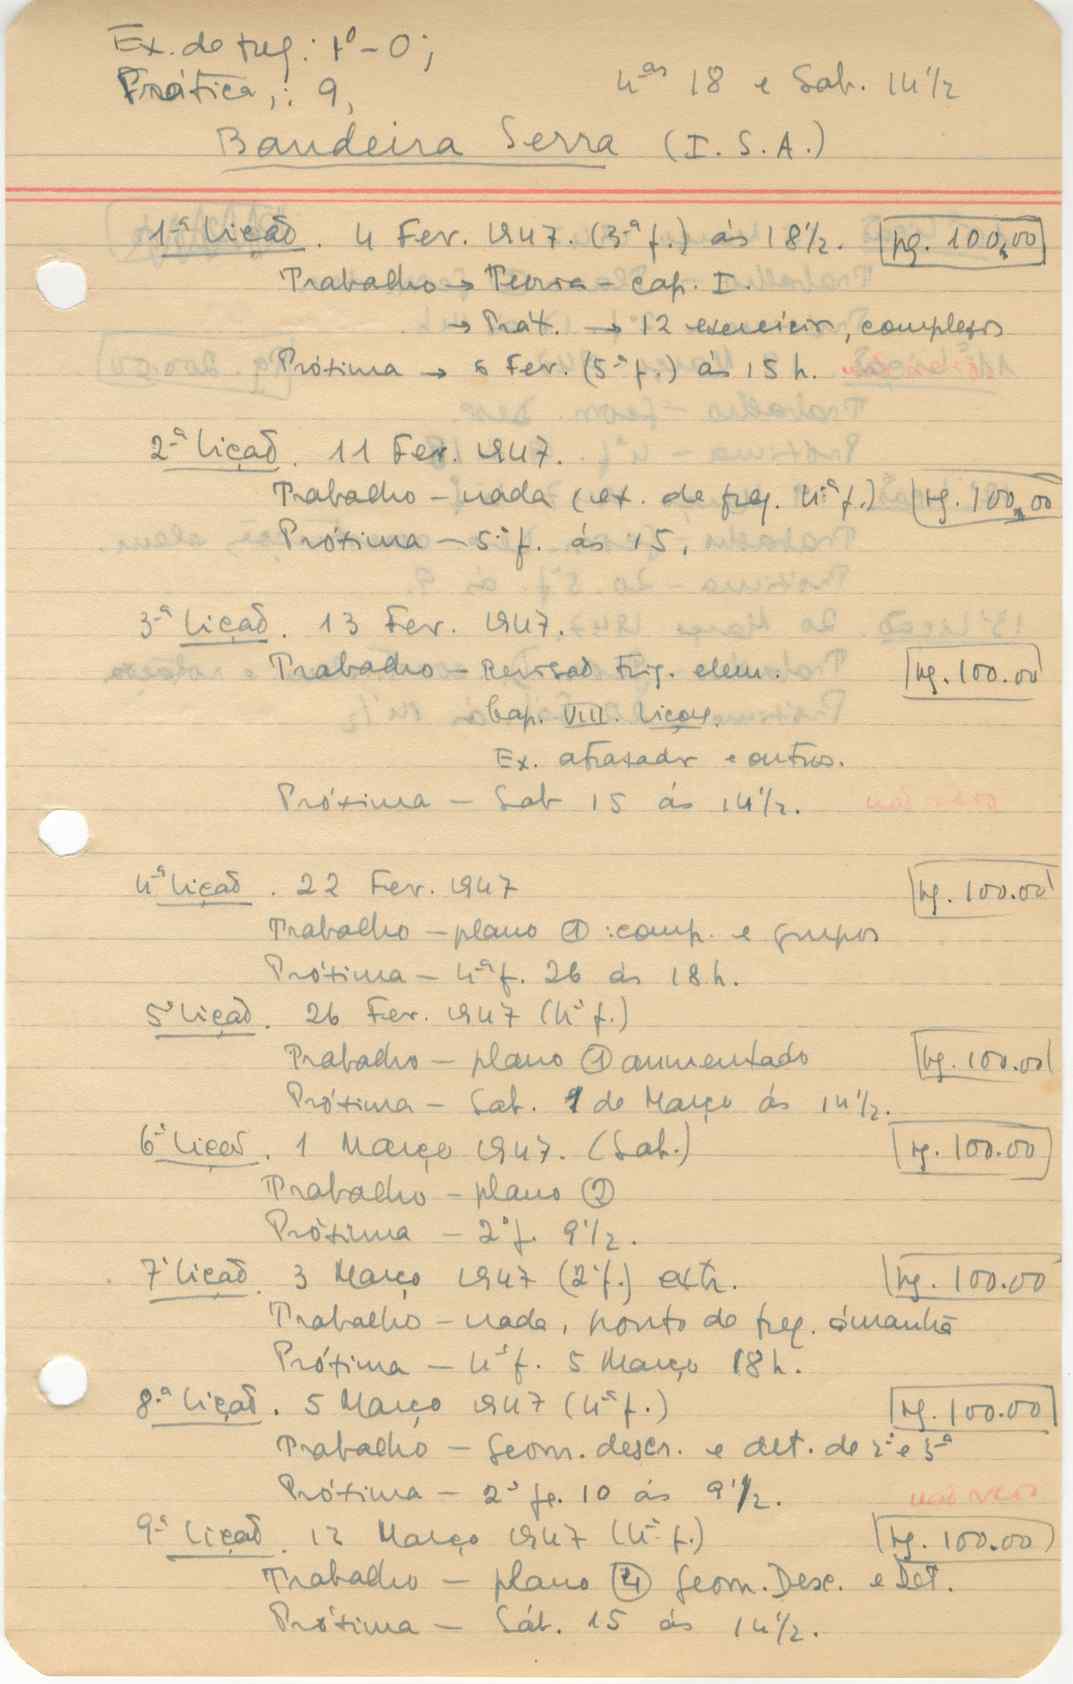 Ex. de freq.: 1º - 0;
Prática,: 9, 4ªs 18 e Sab. 14 1/2
Bandeira Serra (I. S. A.)
1ª Lição. 4 Fev. 1947. (3ª f.) ás 18 1/2. pg. 100,00
Trabalho → Teoria - cap. I.
→ Prát. → 12 exercicios, complexos
Próxima → 6 Fev. (5ª f.) ás 15 h.
2ª Lição. 11 Fev. 1947.
Trabalho - nada (ex. de freq. 4ª f.) pg. 100,00
Próxima - 5ª f. ás 15,
3ª Lição. 13 Fev. 1947.
Trabalho - Revisão Trig. elem. pg. 100.00
Cap. VIII. Lições.
Ex. atrasados e outros.
Próxima - Sab 15 ás 14 1/2. não veio
4ª Lição. 22 Fev. 1947 pg. 100.00
Trabalho - plano ① : comp. e grupos
Próxima - 4ª f. 26 ás 18 h.
5ª Lição. 26 Fev. 1947 (4ª f.)
Trabalho - plano ① aumentado pg. 100.00
Próxima - Sab. 1 de Março ás 14 1/2.
6ª Lição. 1 Março 1947. (Sab.) pg. 100.00
Trabalho - plano ②
Próxima - 2ª f. 9 1/2.
7ª Lição. 3 Março 1947 (2ª f.) extr. pg. 100.00
Trabalho - nada, ponto de freq. àmanhã
Próxima - 4ª f. 5 Março 18 h.
8ª Lição. 5 Março 1947 (4ª f.) pg. 100.00
Trabalho - Geom. descr. e det. de 2ª e 3ª
Próxima - 2ª fe. 10 ás 9 1/2. não veio
9ª Lição. 12 Março 1947 (4ª f.) pg. 100.00
Trabalho - plano ④ Geom. Desc. e Det.
Próxima - Sáb. 15 ás 14 1/2.